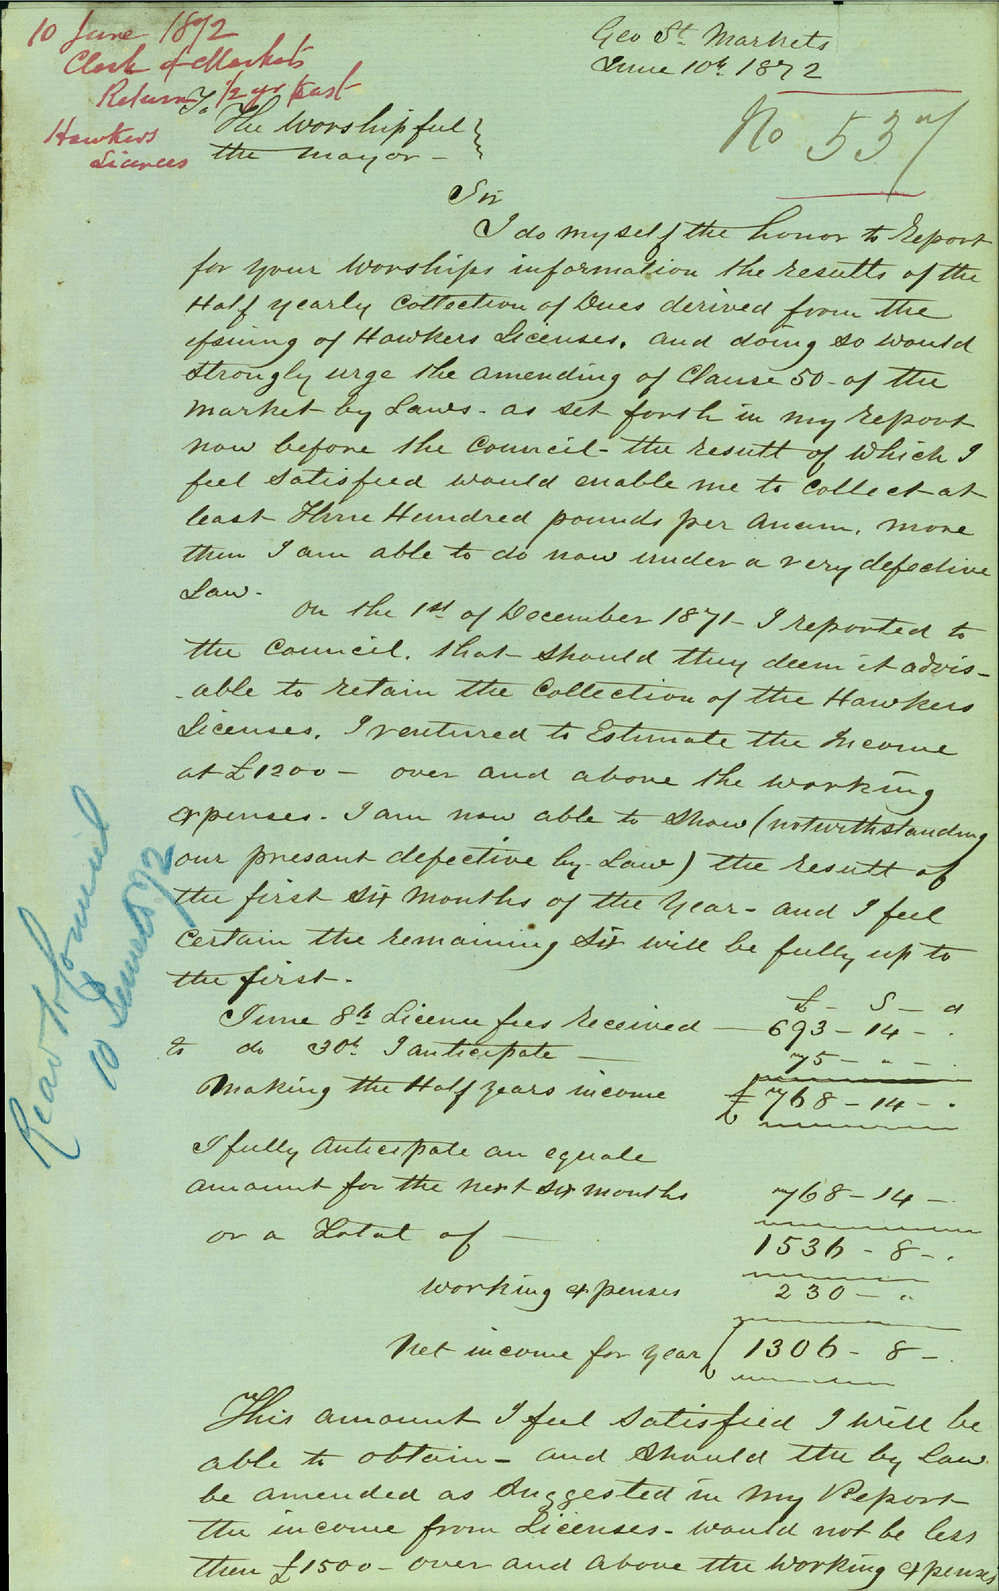 10 June 1872
Clerk of Markets
Return 1/2 yr East
Hawkers
Licences
Geo St. Markets
June 10th 1872
No 537
To
The Worshipful
the Mayor -
Sir
I do myself the honor to Report
for your Worships information the results of the
Half yearly Collection of Dues derived from the
issuing of Hawkers Licenses. and doing so would
strongly urge the amending of Clause 50 - of the
Market by Laws - as set forth in my report
now before the Council - the result of which I
feel satisfied would enable me to collect at
least Three Hundred pounds per Anum. more
then I am able to do now under a very defective
Law -
On the 1st of December 1871 - I reported to
the Council. that should they deem it advis-
-able to retain the Collection of the Hawkers
Licenses. I ventured to Estimate the Income
at £1200 - over and above the working
expenses - I am now able to show (notwithstanding
our presant defective by-Law) the result of
the first six months of the Year - and I feel
certain the remaining six will be fully up to
the first -
£ - S - d
June 8th License fees Received - 693 - 14 - .
to do 30th I anticipate - 75 - " - .
Making the Half years income £ 768 - 14 - .
I fully Anticipate an equale
amount for the next six months 768 - 14 -
or a Total of - 1536 - 8 - .
working expenses 230 - "
Net income for year £ 1306 - 8 - .
This amount I feel satisfied I will be
able to obtain - and should the by Law
be amended as suggested in my Report
the income from Licenses - would not be less
then £1500 - over and above the working expenses
Read to Council
10 June 1872